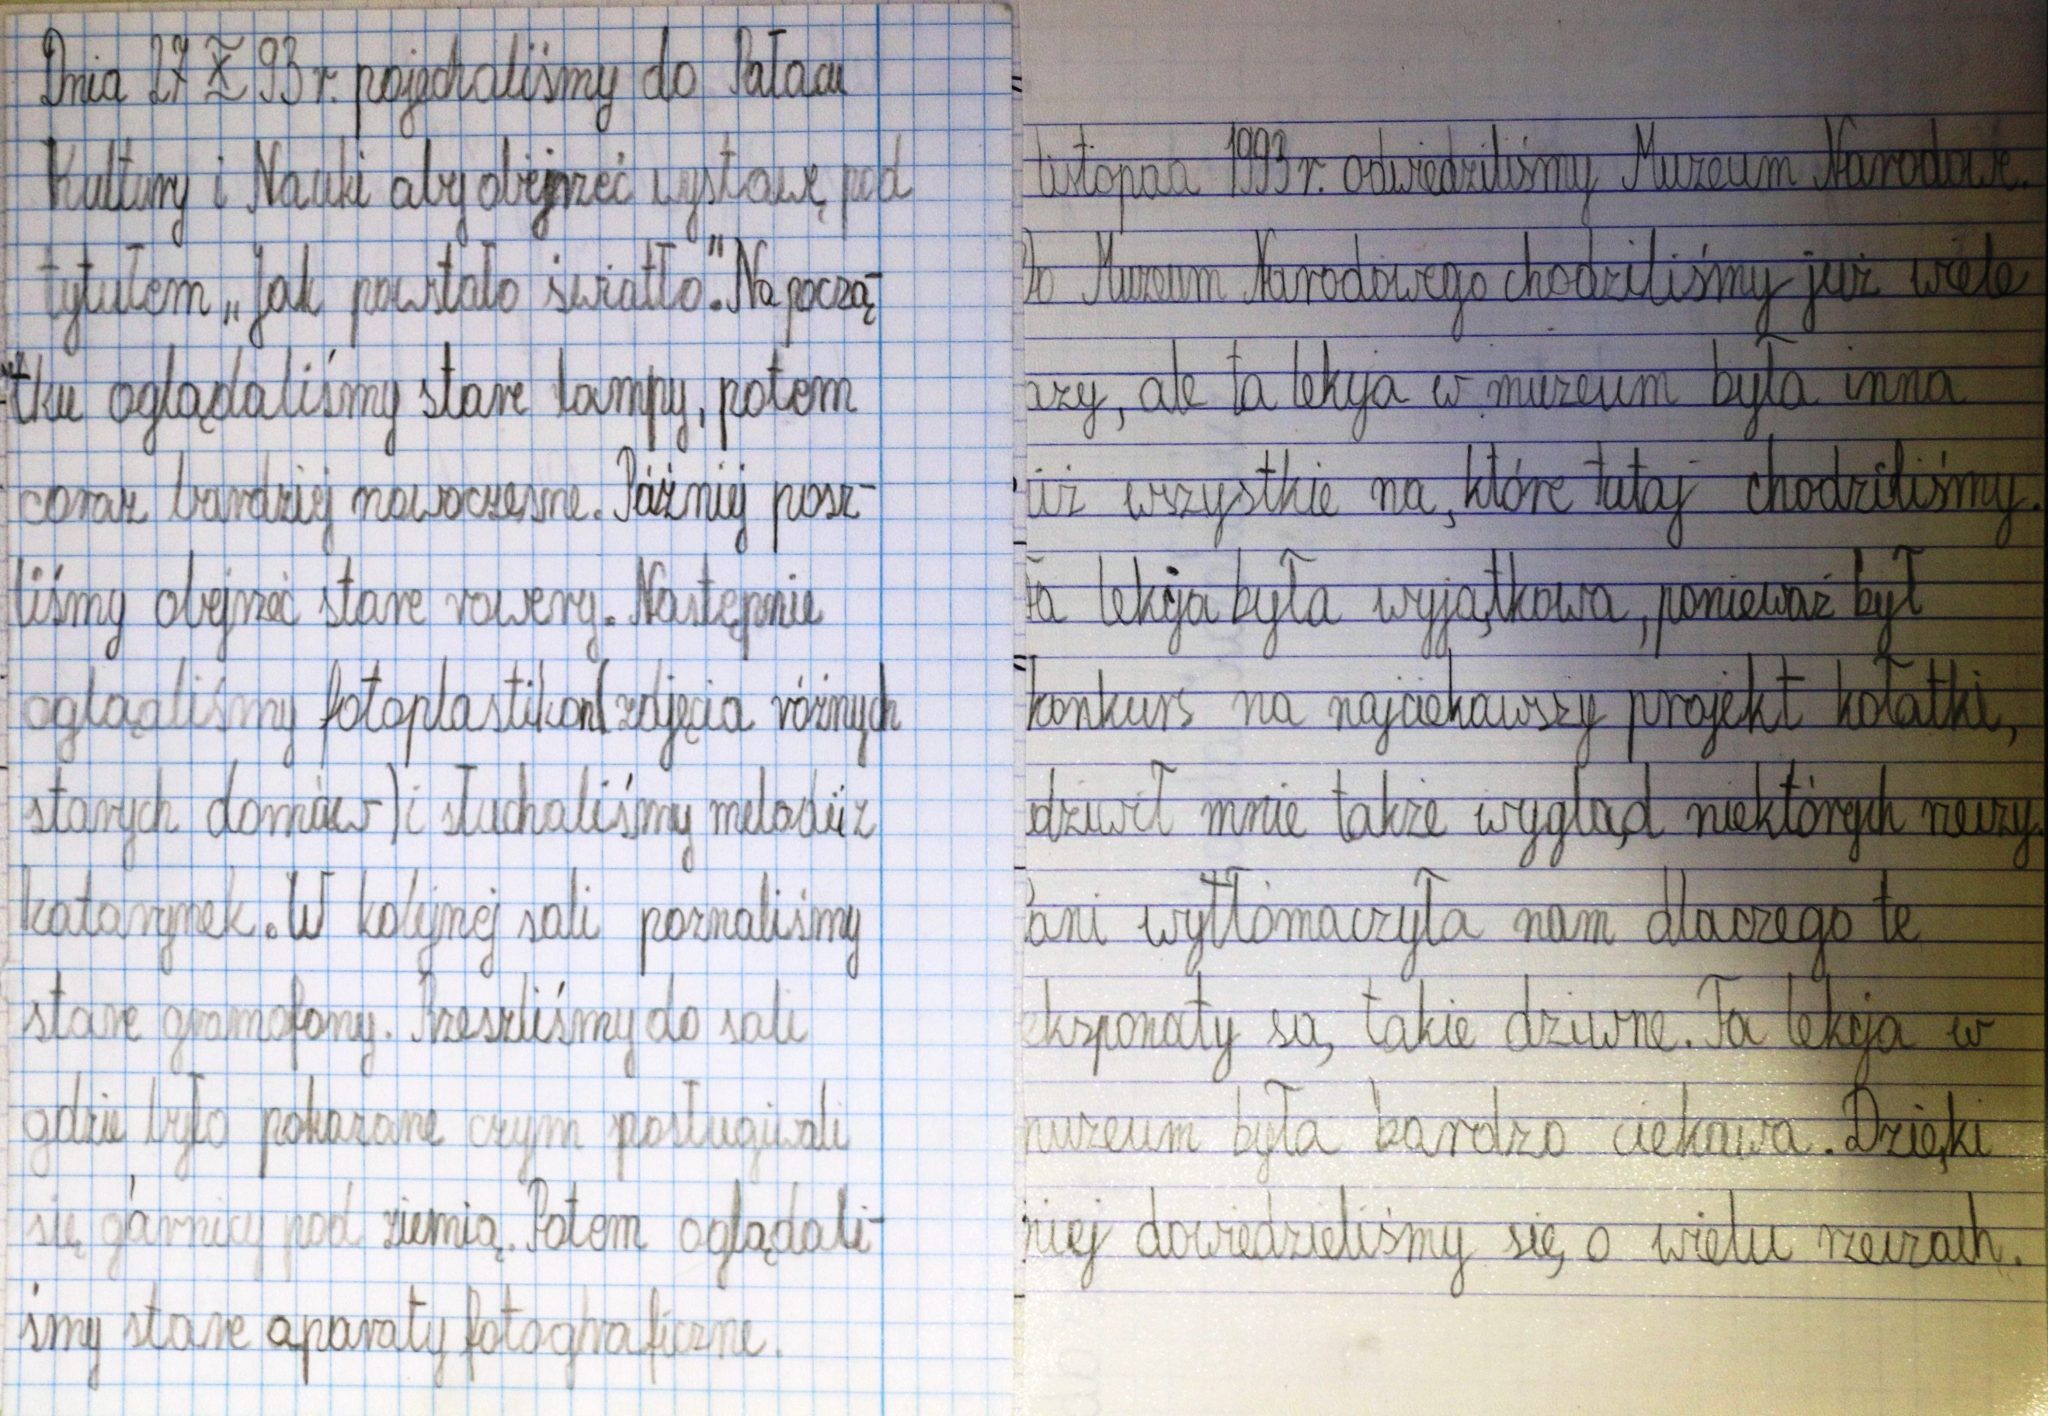 Dnia 27 X 93 r. pojechaliśmy do Pałacu
Kultury i Nauki aby obejrzeć wystawę pod
tytułem „Jak powstało światło". Na począ-
tku oglądaliśmy stare lampy, potem
coraz bardziej nowoczesne. Później posz-
liśmy obejrzeć stare rowery. Następnie
oglądaliśmy fotoplastikon (zdjęcia różnych
starych domów) i słuchaliśmy melodii z
katarynek. W kolejnej sali poznaliśmy
stare gramofony. Przeszliśmy do sali
gdzie było pokazane czym posługiwali
się górnicy pod ziemią. Potem oglądali-
śmy stare aparaty fotograficzne.
listopada 1993 r. odwiedziliśmy Muzeum Narodowe.
Do Muzeum Narodowego chodziliśmy już wiele
azy, ale ta lekcja w muzeum była inna
iż wszystkie na, które tutaj chodziliśmy.
Ta lekcja była wyjątkowa, ponieważ był
konkurs na najciekawszy projekt kołatki,
dziwił mnie także wygląd niektórych rzeczy.
Pani wytłómaczyła nam dlaczego te
eksponaty są takie dziwne. Ta lekcja w
muzeum była bardzo ciekawa. Dzięki
niej dowiedzieliśmy się o wielu rzeczach.